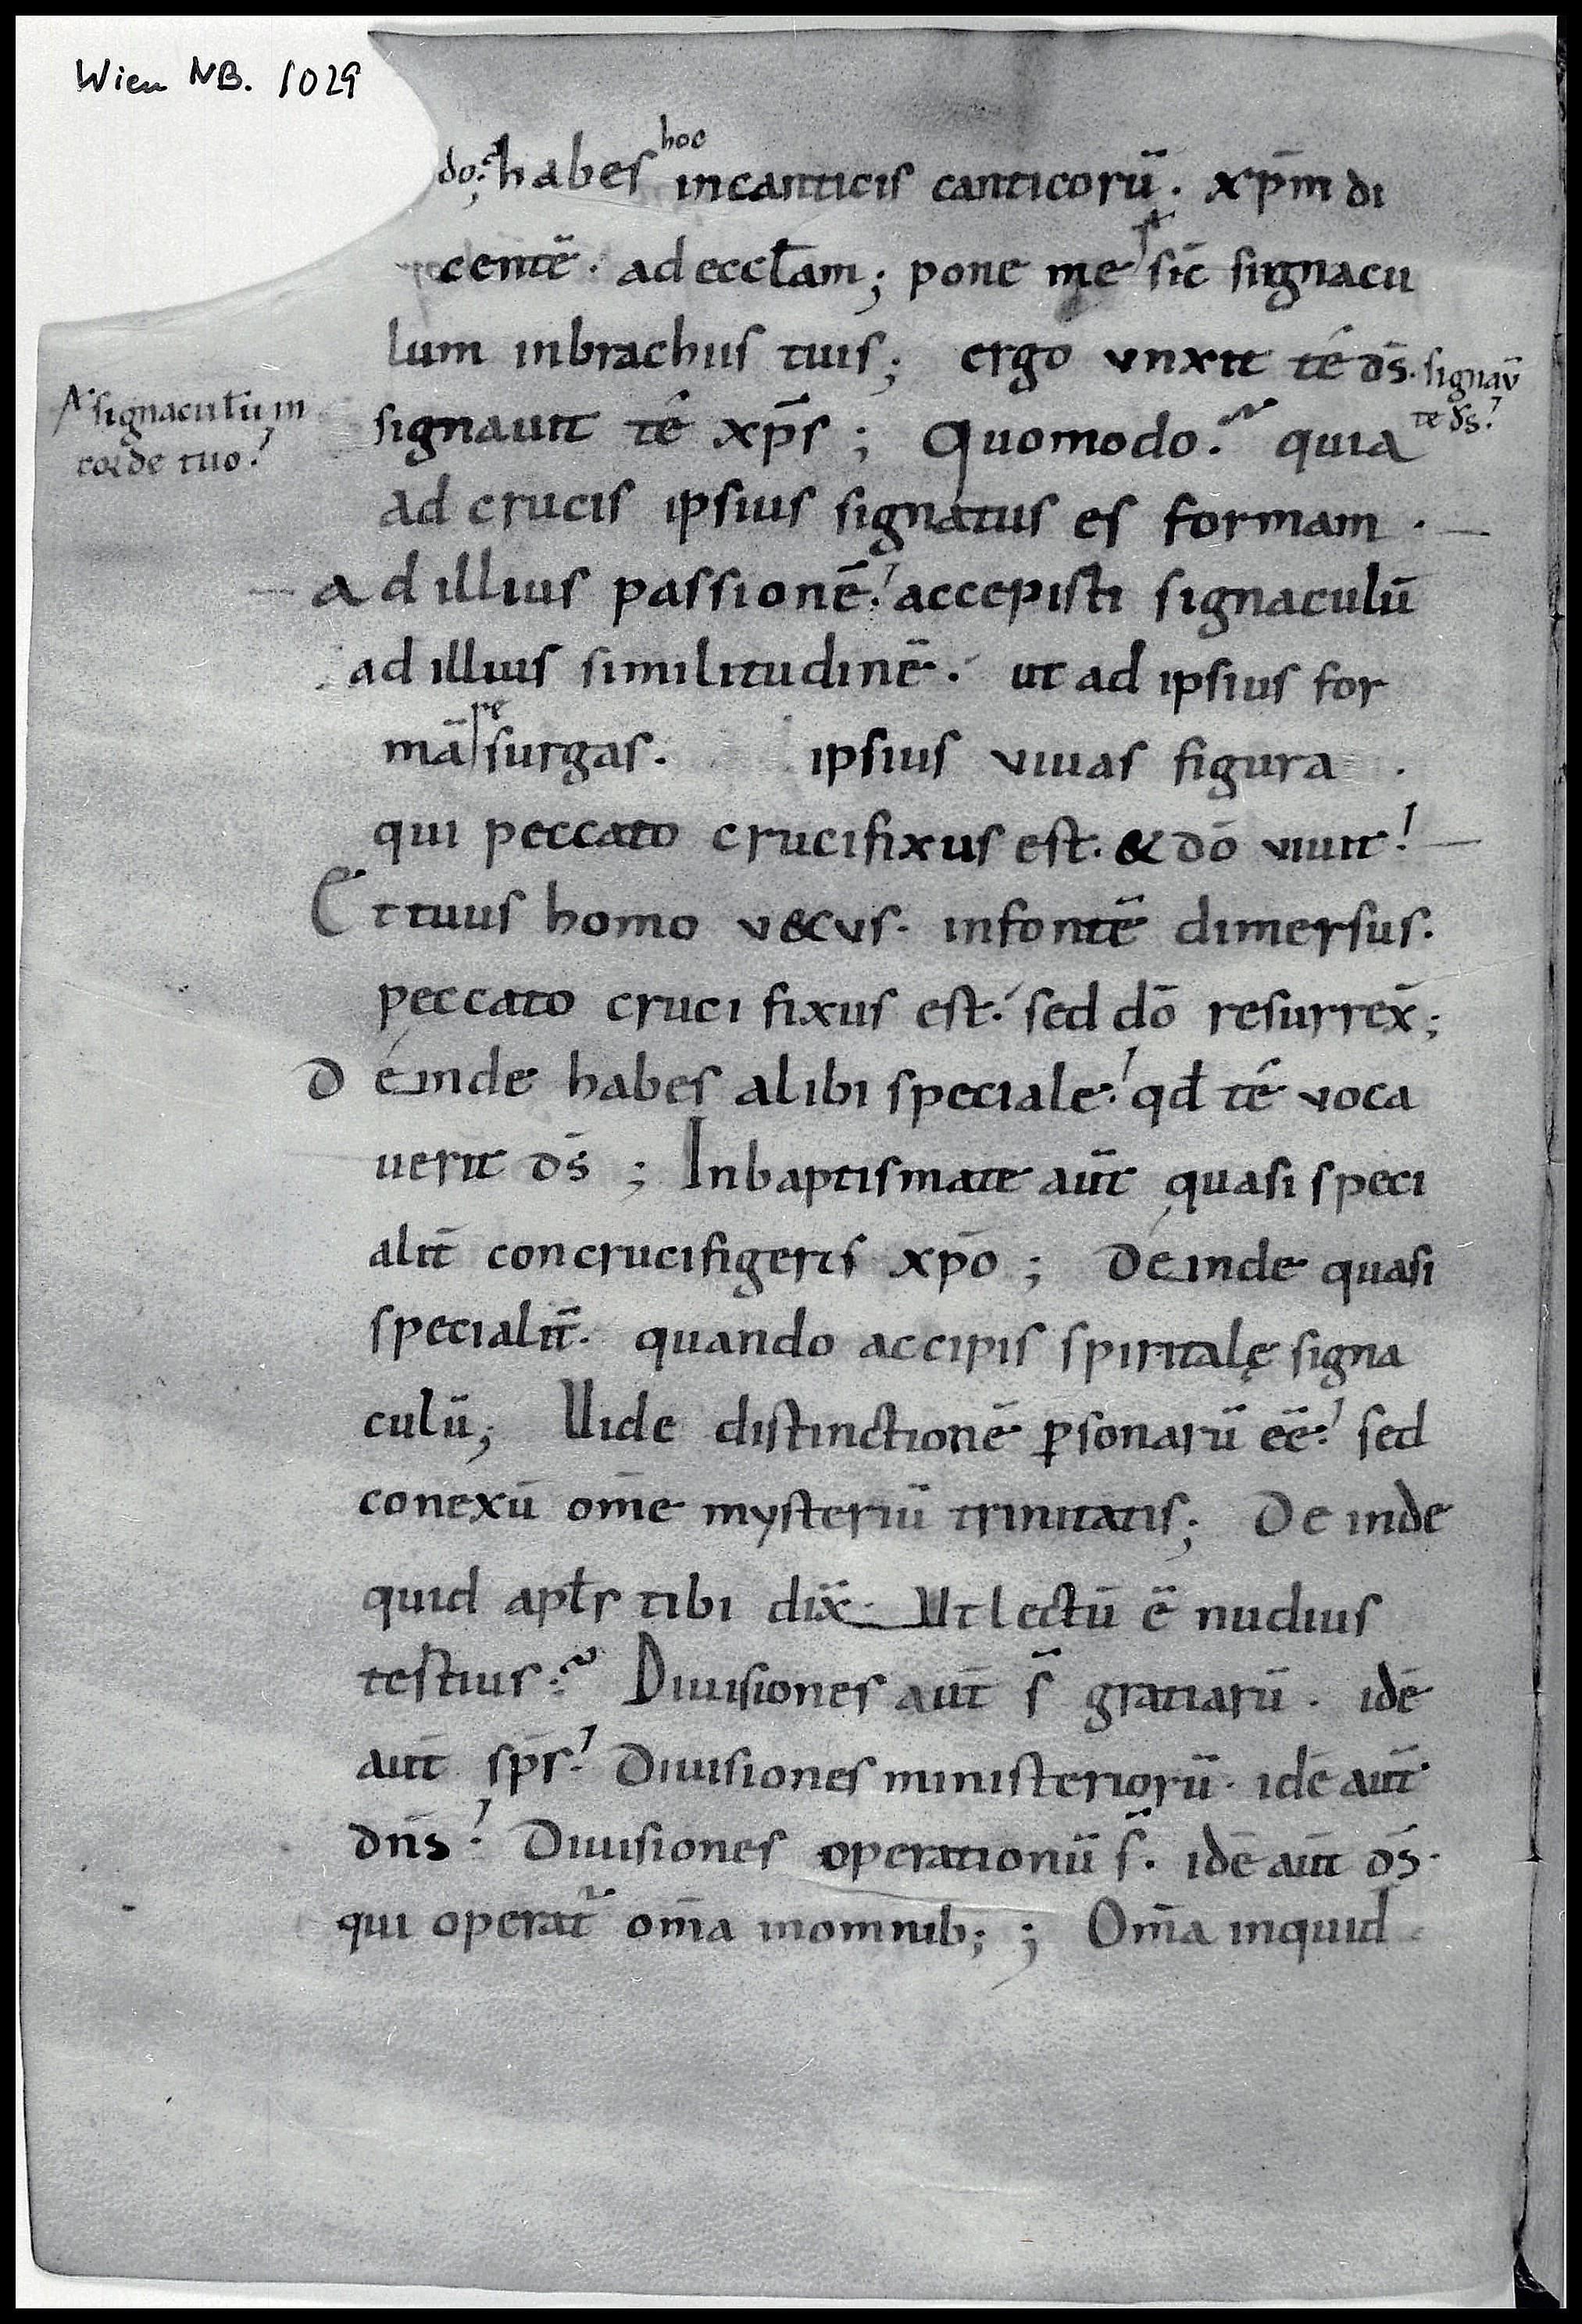 Wien NB. 1029
do; habes hoc incanticis canticorū. xp̄m di
centē. ad eccl̄am; pone me sic̄ signacu
lum inbrachiis tuis; ergo vnxit té dś. signav̄
te dś.
signauit té xp̄s; Quomodo? quia
signaculū in
corde tuo.
ad crucis ipsius signatus es formam.
ad illius passionē. accepisti signaculū
ad illius similitudinē. ut ad ipsius for
mā resurgas. ipsius viuas figura.
qui peccato crucifixus est. & dō viuit.
Et tuus homo v&vs. infontē dimersus.
peccato cruci fixus est. sed dō resurrex̄;
Déinde habes alibi speciale. qd̄ té voca
uerit ds̄; Inbaptismate aūt quasi speci
alit̄ concrucifigeris xp̄o; Déinde quasi
specialit̄. quando accipis spiritalę signa
culū; Uide distinctionē ꝑsonarū eē. sed
conexū om̄e mysteriū trinitatis; De inde
quid apl̄s tibi dix̄. Ut lectū ē nudius
testius? Diuisiones aūt s̄ gratiarū. idē
aūt sp̄s. Diuisiones ministeriorū. idē aūt
dn̄s. Diuisiones operationū s̄. idē aūt ds̄.
qui operat̄ om̄a inomnib;; Om̄a inquid